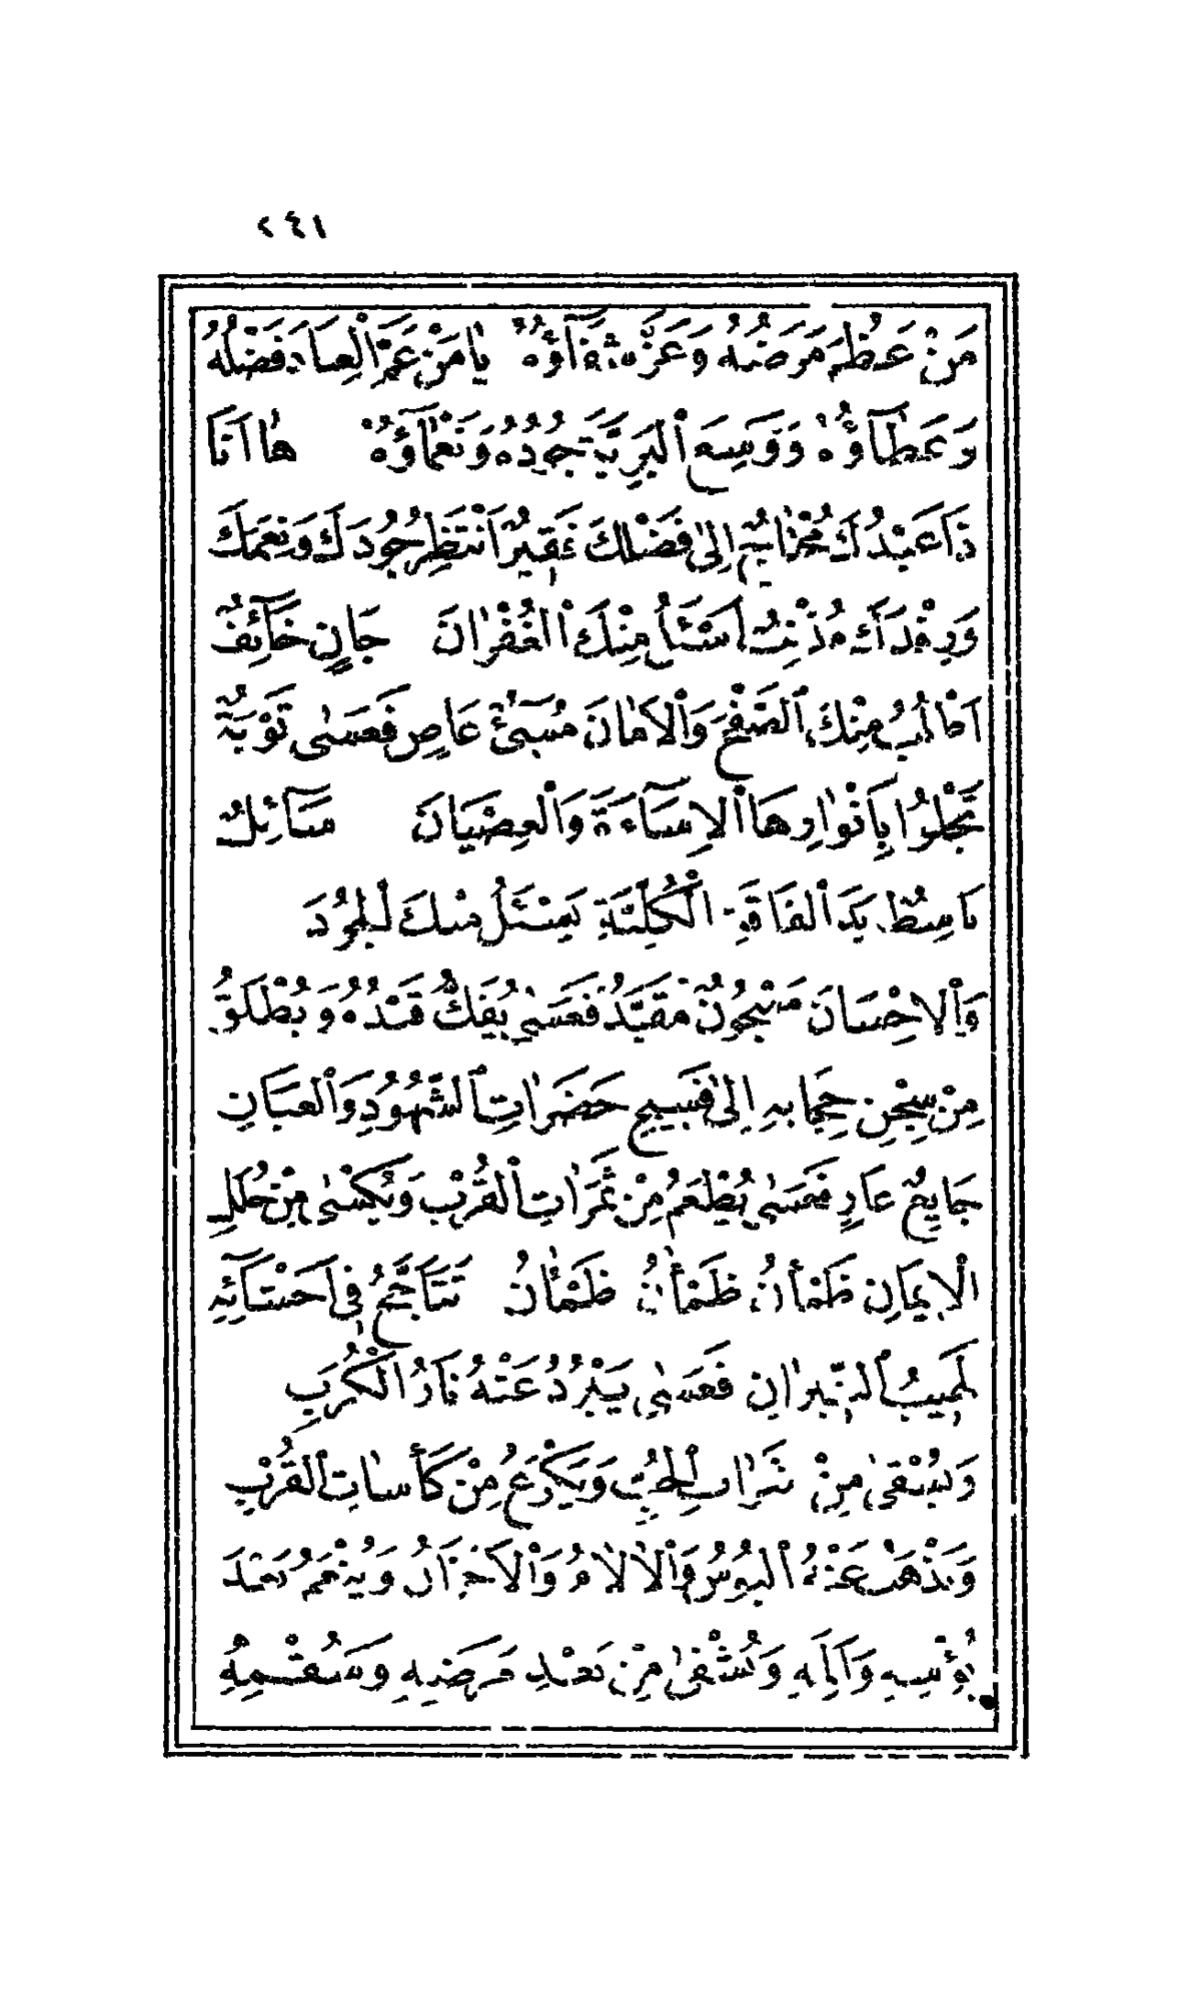 ٢٤١
مَنْ عَظُمَ مَرَضُهُ وَعَزَّ شِفَآؤُهُ يَا مَنْ عَمَّ الْعِبَادَ فَضْلُهُ
وَعَطَآؤُهُ وَوَسِعَ الْبَرِيَّةَ جُودُهُ وَنَعْمَآؤُهُ هَا اَنَا
ذَا عَبْدُكَ مُحْتَاجٌ اِلَى فَضْلِكَ فَقِيرٌ اَنْتَظِرُ جُودَكَ وَنِعَمَكَ
وَرِفْدَكَ مُذْنِبٌ اَسْئَلُ مِنْكَ الْغُفْرَانَ جَانٍ خَآئِفٌ
اَطْلُبُ مِنْكَ الصَّفْحَ وَالْاَمَانَ مُسِيٓئٌ عَاصٍ فَعَسَى تَوْبَةٌ
تَجْلُوا بِاَنْوَارِهَا الْاِسَآءَةَ وَالْعِصْيَانَ سَآئِلٌ
بَاسِطٌ يَدَ الْفَاقَةِ الْكُلِّيَّةِ يَسْئَلُ مِنْكَ الْجُودَ
وَالْاِحْسَانَ مَسْجُونٌ مُقَيَّدٌ فَعَسَى يُفَكُّ قَيْدُهُ وَيُطْلَقُ
مِنْ سِجْنِ حِجَابِهِ اِلَى فَسِيحِ حَضَرَاتِ الشُّهُودِ وَالْعَيَانِ
جَايِعٌ عَارٍ فَعَسَى يُطْعَمُ مِنْ ثَمَرَاتِ الْقُرْبِ وَيُكْسَى مِنْ حُلَلِ
الْاِيمَانِ ظَمْأَنُ ظَمْأَنُ ظَمْأَنُ تَتَأَجَّجُ فِى اَحْشَآئِهِ
لَهِيبُ النِّيرَانِ فَعَسَى يَبْرُدُ عَنْهُ نَارُ الْكُرَبِ
وَيُسْقَى مِنْ شَرَابِ الْحُبِّ وَيَكْرَعُ مِنْ كَأْسَاتِ الْقُرْبِ
وَيَذْهَبُ عَنْهُ الْبُؤْسُ وَالْاٰلَامُ وَالْاَحْزَانُ وَيُنْعَمُ بَعْدَ
بُؤْسِهِ وَاَلَمِهِ وَيُشْفَى مِنْ بَعْدِ مَرَضِهِ وَسَقَمِهِ